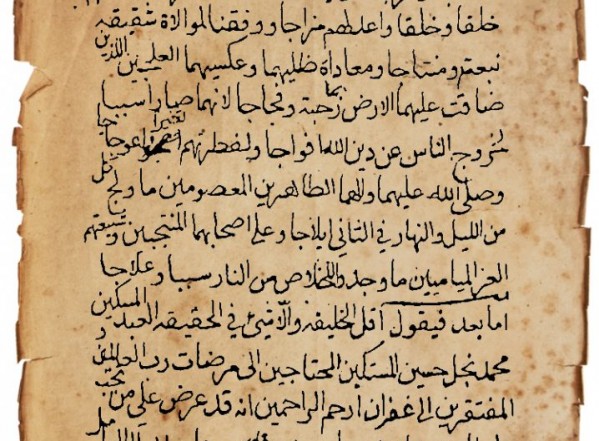 خلقا وخلقا واعدلهم مزاجا ووفقنا لموالاة شقيقه
نبعتم ومنتاجا ومعاداة ظليهما وعكسيهما العلـ ـين اللذين
ضاقت عليهما الارض بما رحبة وفجاجا لانهما صارا سببا
لخروج الناس عن دين الله افواجا ولفطرتهم تغييرا واعوجاجا
وصلى الله عليهما وآلهما الطاهرين المعصومين ما ولج كل
من الليل والنهار في الثاني ايلاجا وعلى اصحابهما المنتجبين وشيعتهم
الغر الميامين ما وجد والخلاص من النار سببا وعلاجا
اما بعد فيقول اقل الخليقه واللاشئ في الحقيقه العبد المسكين
محمد نجل حسين المستكين المحتاجين الى مرضات رب العالمين و
المفتقرين الى غفران ارحم الراحمين انه قد عرض علي من تجب